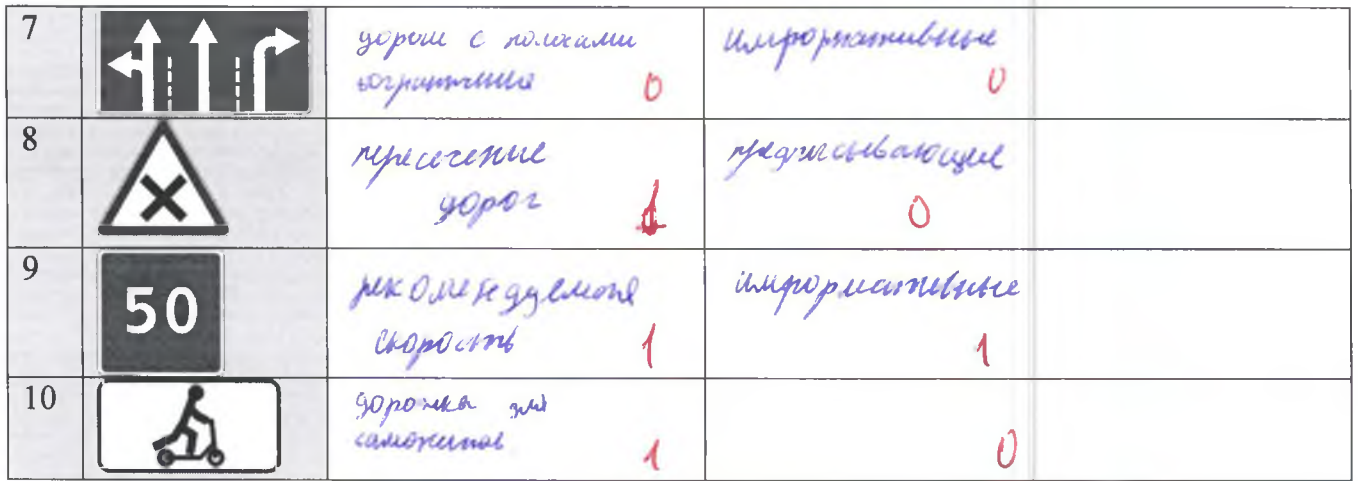 7
дороги с полосами
ограничения 0
информативные
0
8
пересечение
дорог 1
предписывающие
0
9
50
рекомендуемая
скорость 1
информативные
1
10
дорожка для
самокатов 1
0